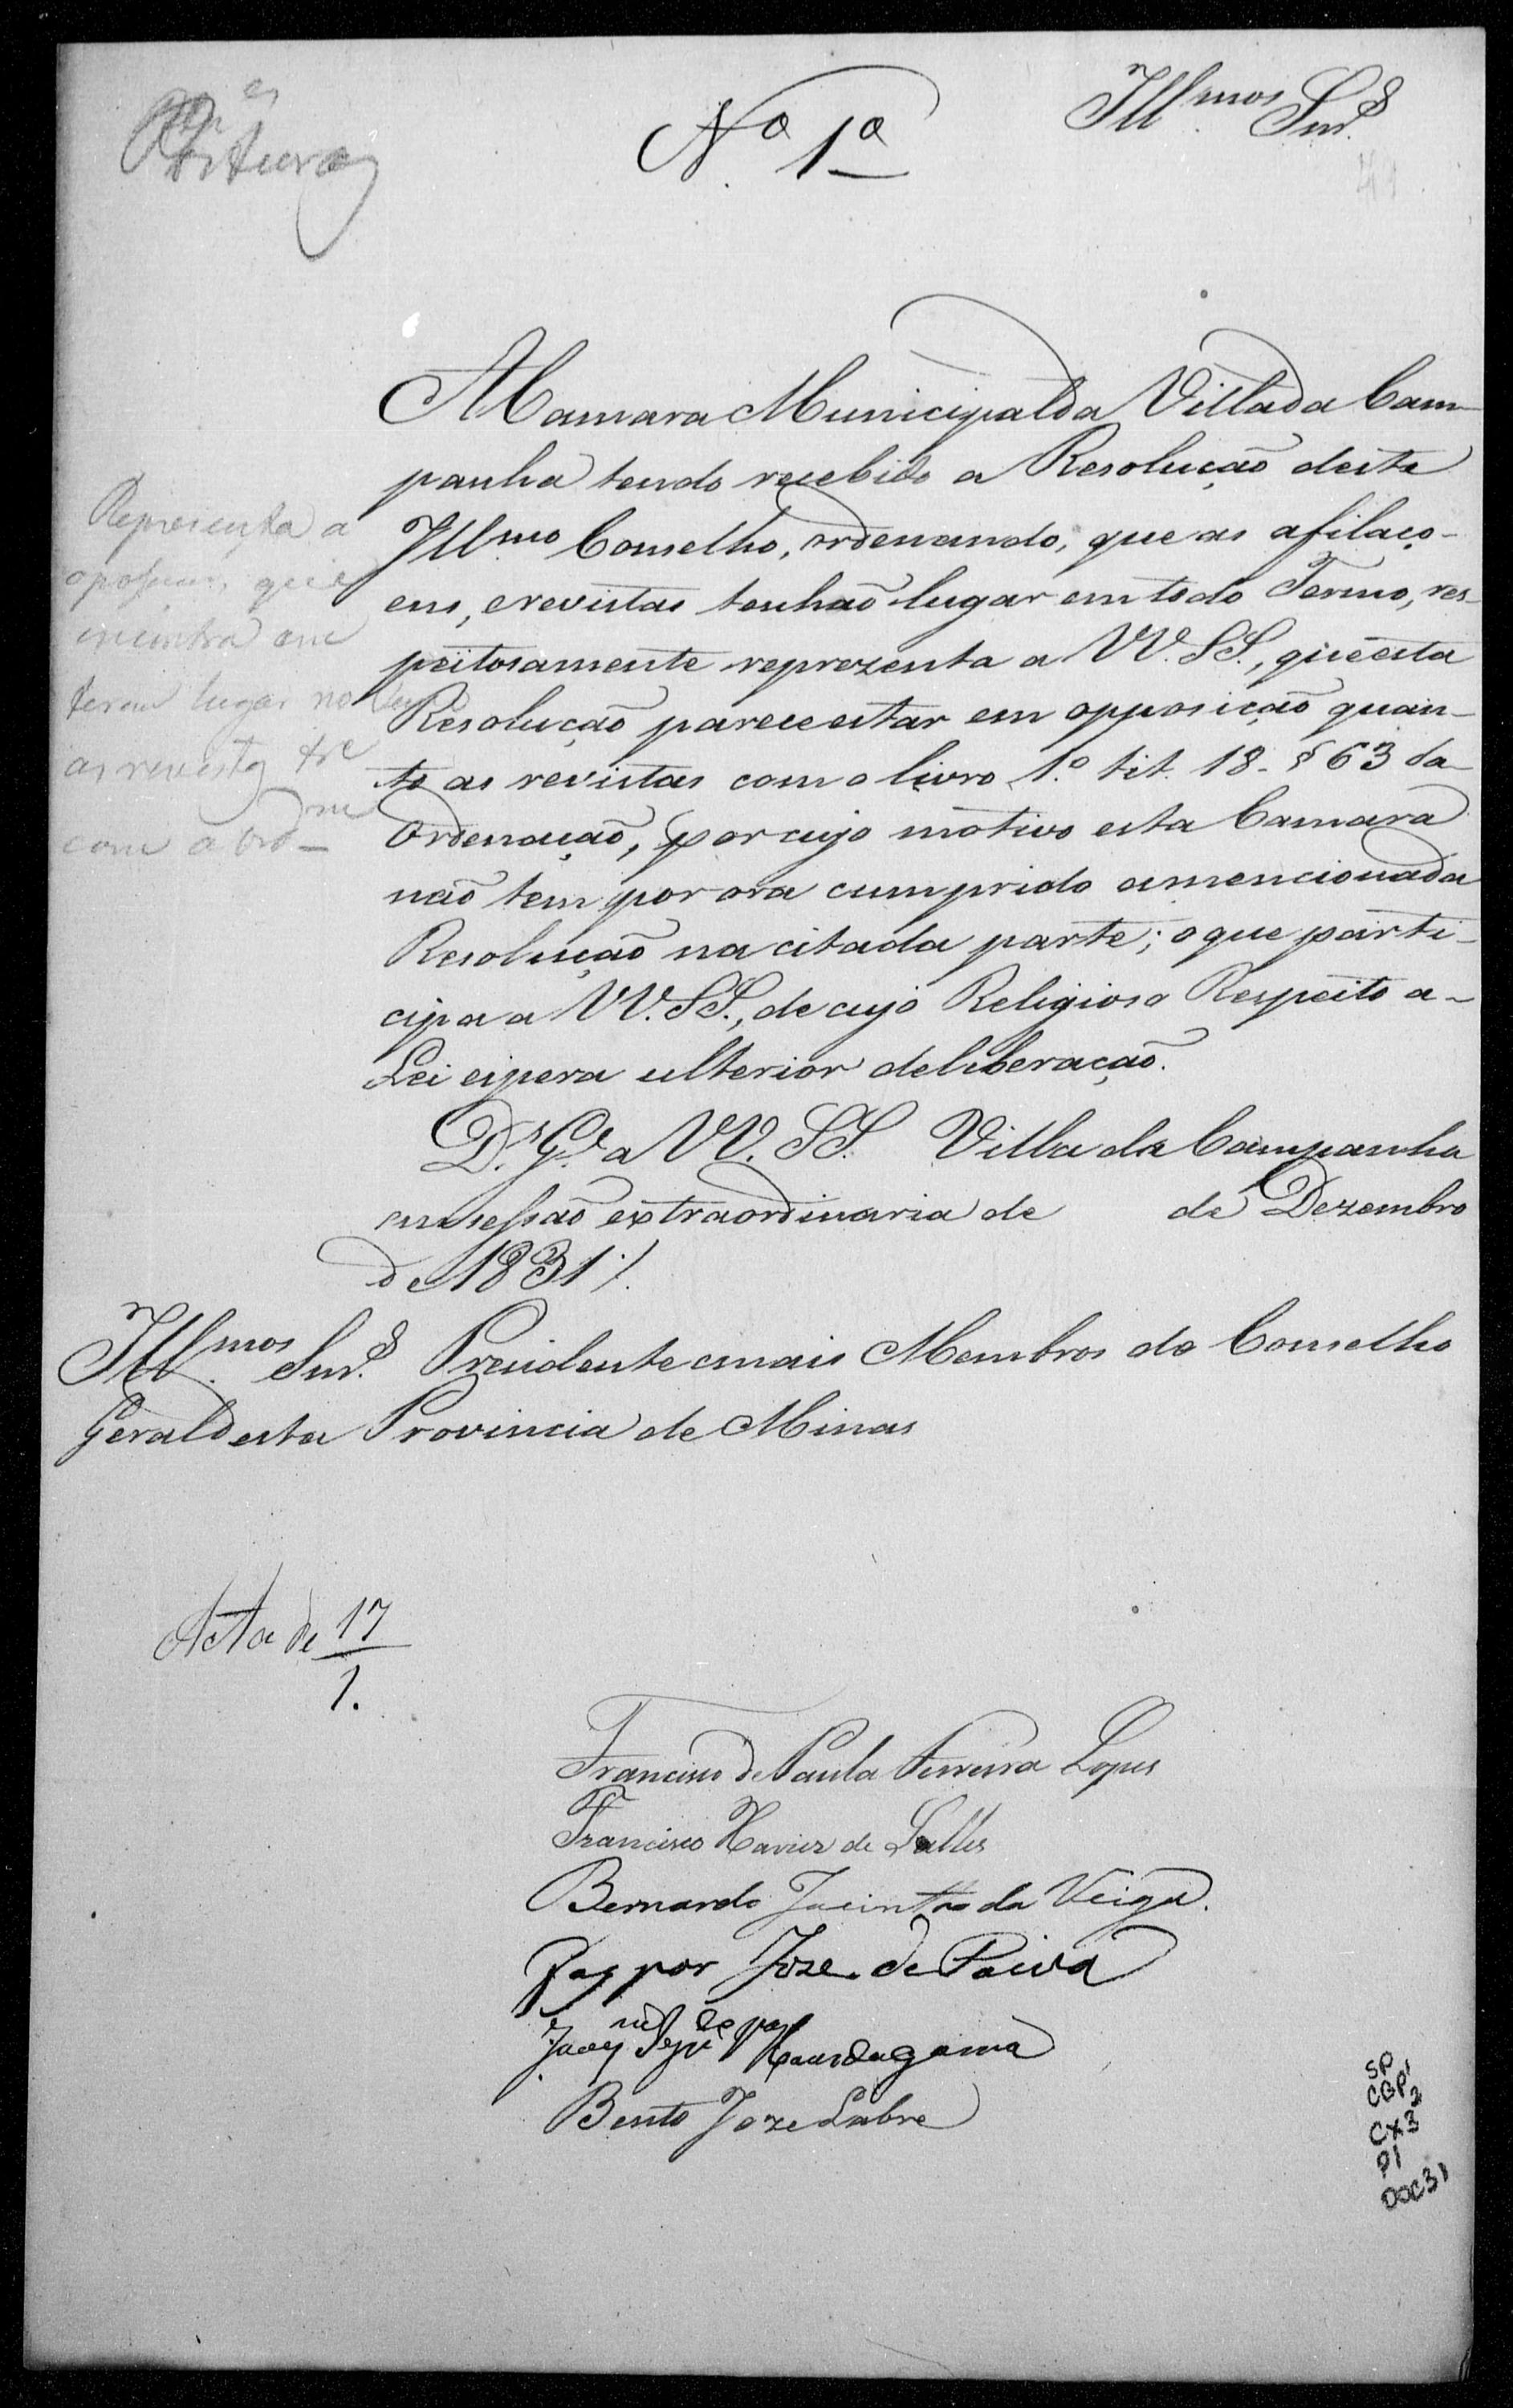 Nº 1º
Ill.mos Snr.s
A Camara Municipal da Villa da Cam-
panha tendo recebido a Resolução deste
Ill.mo Conselho, ordenando, que as afilaço-
ens, e revistas tenhão lugar em todo Termo, res-
peitosamente reprezenta a VV. SS., que esta
Resolução parece estar em opposição quan-
to as revistas com o livro 1.º tit. 18 - § 63 da
Ordenação, por cujo motivo esta Camara
não tem por ora cumprido a mencionada
Resolução na citada parte; o que parti-
cipa a VV. SS., de cujo Religioso Respeito a-
Lei espera ulterior deliberação.
D.s G.e a VV. SS. Villa da Campanha
em sessão extraordinaria de de Dezembro
de 1831 ./.
Ill.mos Snr.s Prezidente e mais Membros do Conselho
Geral desta Provincia de Minas
Representa a
que
encontra em
terem lugar no
as revistas
com a Ord-
Acta de 17
1.
Francisco de Paula Ferreira Lopes
Francisco Xavier de Salles
Bernardo Jacintho da Veiga.
Gaspar Joze de Paiva
da gama
Bento Joze Labre
SP
CGP1
2
CX3
P1
DOC31